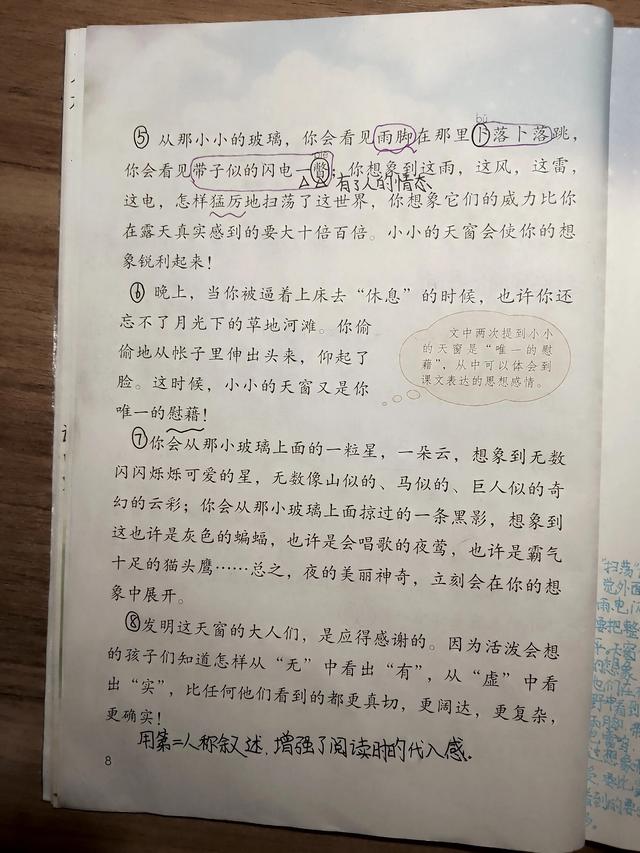 bǔ
⑤从那小小的玻璃，你会看见雨脚在那里卜落卜落跳，
你会看见带子似的闪电一瞥；你想象到这雨，这风，这雷，
有了人的情态
这电，怎样猛厉地扫荡了这世界，你想象它们的威力比你
在露天真实感到的要大十倍百倍。小小的天窗会使你的想
象锐利起来！
⑥晚上，当你被逼着上床去“休息”的时候，也许你还
忘不了月光下的草地河滩。你偷
偷地从帐子里伸出头来，仰起了
脸。这时候，小小的天窗又是你
唯一的慰藉！
文中两次提到小小
的天窗是“唯一的慰
藉”，从中可以体会到
课文表达的思想感情。
⑦你会从那小玻璃上面的一粒星，一朵云，想象到无数
闪闪烁烁可爱的星，无数像山似的、马似的、巨人似的奇
幻的云彩；你会从那小玻璃上面掠过的一条黑影，想象到
这也许是灰色的蝙蝠，也许是会唱歌的夜莺，也许是霸气
十足的猫头鹰……总之，夜的美丽神奇，立刻会在你的想
象中展开。
⑧发明这天窗的大人们，是应得感谢的。因为活泼会想
的孩子们知道怎样从“无”中看出“有”，从“虚”中看
出“实”，比任何他们看到的都更真切，更阔达，更复杂，
更确实！
用第二人称叙述，增强了阅读时的代入感。
8
“扫荡”
觉外面
要把整
的想象